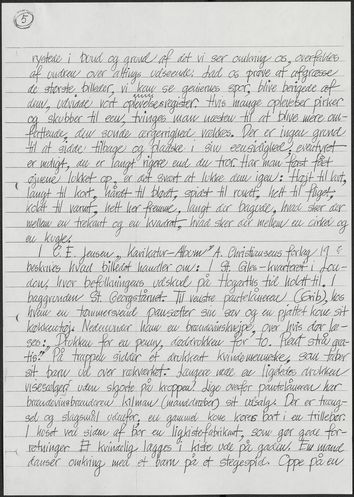 5
rystede i bund og grund af det vi ser omkring os, overfaldes
af undren over altings udseende. Lad os prøve at afgræsse
de største billeder, vi kan se geniernes spor, blive berigede af
dem, udvidde vort oplevelsesregister. Hvis mange oplevelser pirker
og skubber til een, tvinges man næsten til at blive mere om-
fattende, den sunde ærgerrighed vækkes. Der er ingen grund
til at sidde tilbage og pladske i sin eensidighed, eventyret
er muligt, du er langt rigere end du tror. Har man først fået
øjnene lukket op, er det svært at lukke dem igen: Højt til lavt,
langt til kort, hårdt til blødt, spidst til rundt, helt til fliget,
koldt til varmt, helt her fremme, langt der bagude, hvad sker der
mellem en trekant og en kvadrat, hvad sker der mellem en cirkel og
en kugle.
I C. E. Jensen „Karikatur-Album" A. Christiansens forlag 19
beskrives hvad billedet handler om: I St. Giles-kvarteret i Lon-
don, hvor befolkningens udskud på Hogarths tid holdt til. I
baggrunden St. Georgstårnet. Til venstre pantelåneren (Grib), hos
hvem en tømmersvend pantsætter sin sav og en pjaltet kone sit
køkkentøj. Nedenunder ham en brændevinskneipe, over hvis dør læ-
ses: Drukken for en penny, døddrukken for to. Rent strå gra-
tis." På trappen sidder et drukkent kvindemenneske, som taber
sit barn ud over rækværket. Længere nede en ligbleg drukken
visesælger uden skjorte på kroppen. Lige overfor pantelåneren har
brændevinsbrænderen Kilman (manddræber) sit udsalg. Der er træng-
sel og slagsmål udenfor, en gammel kone køres bort i en trillebør.
I huset ved siden af bor en ligkistefabrikant, som gør gode for-
retninger. Et kvindelig lægges i kiste ude på gaden. En mand
danser omkring med et barn på et stegespid. Oppe på en